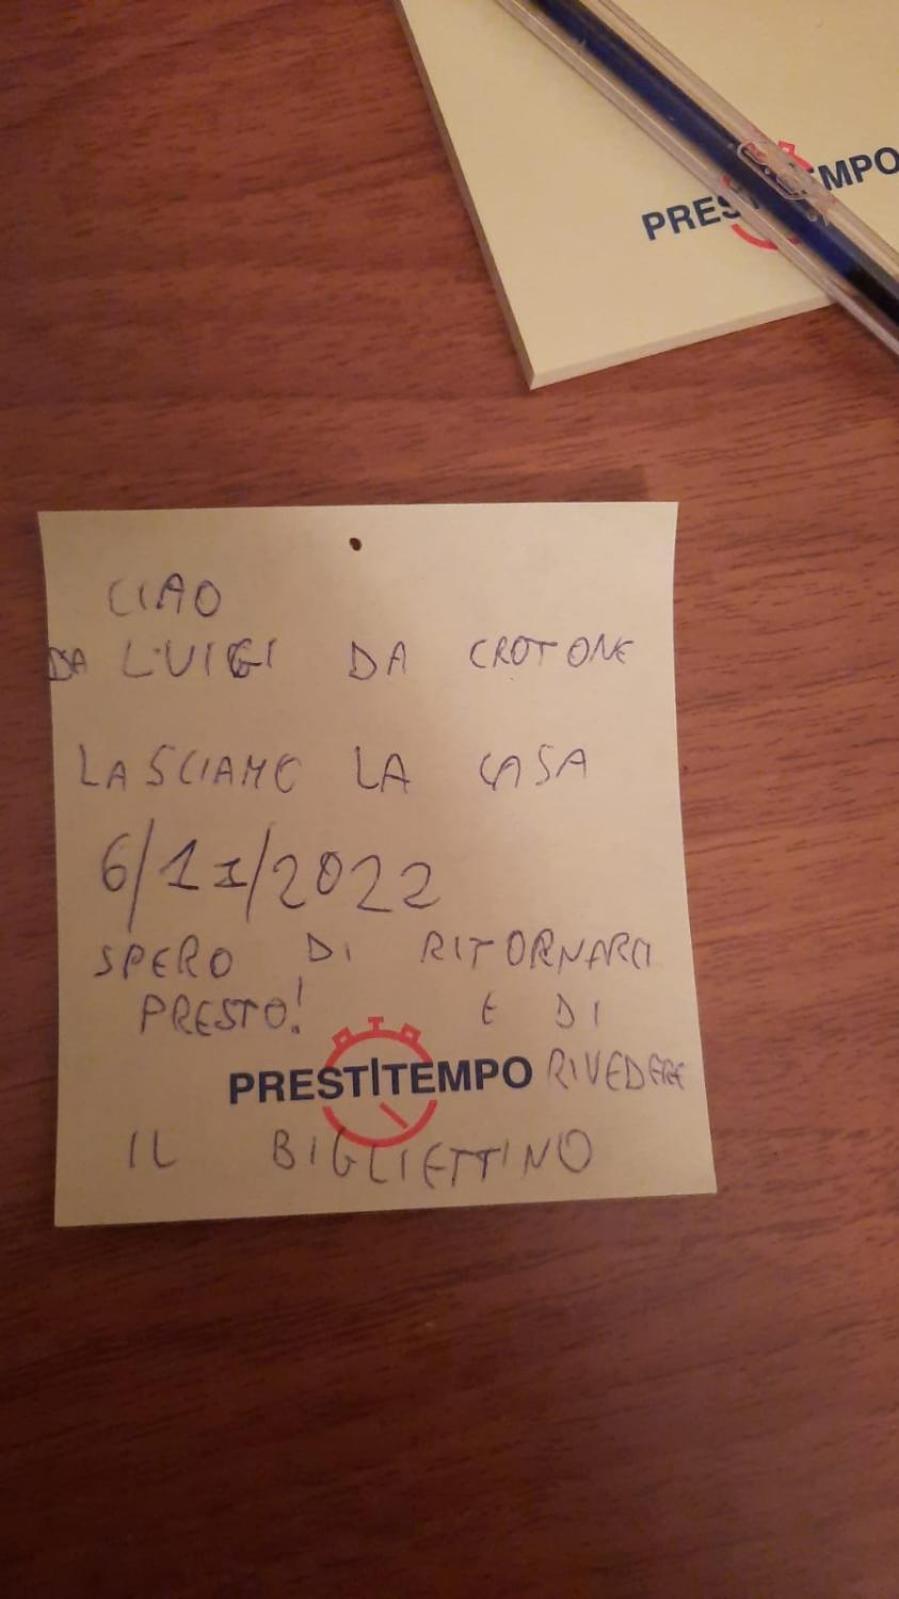 PRESTITEMPO
CIAO
DA LUIGI DA CROTONE
LASCIAMO LA CASA
6/11/2022
SPERO DI RITORNARCI
PRESTO! E DI
PRESTITEMPO RIVEDERE
IL BIGLIETTINO